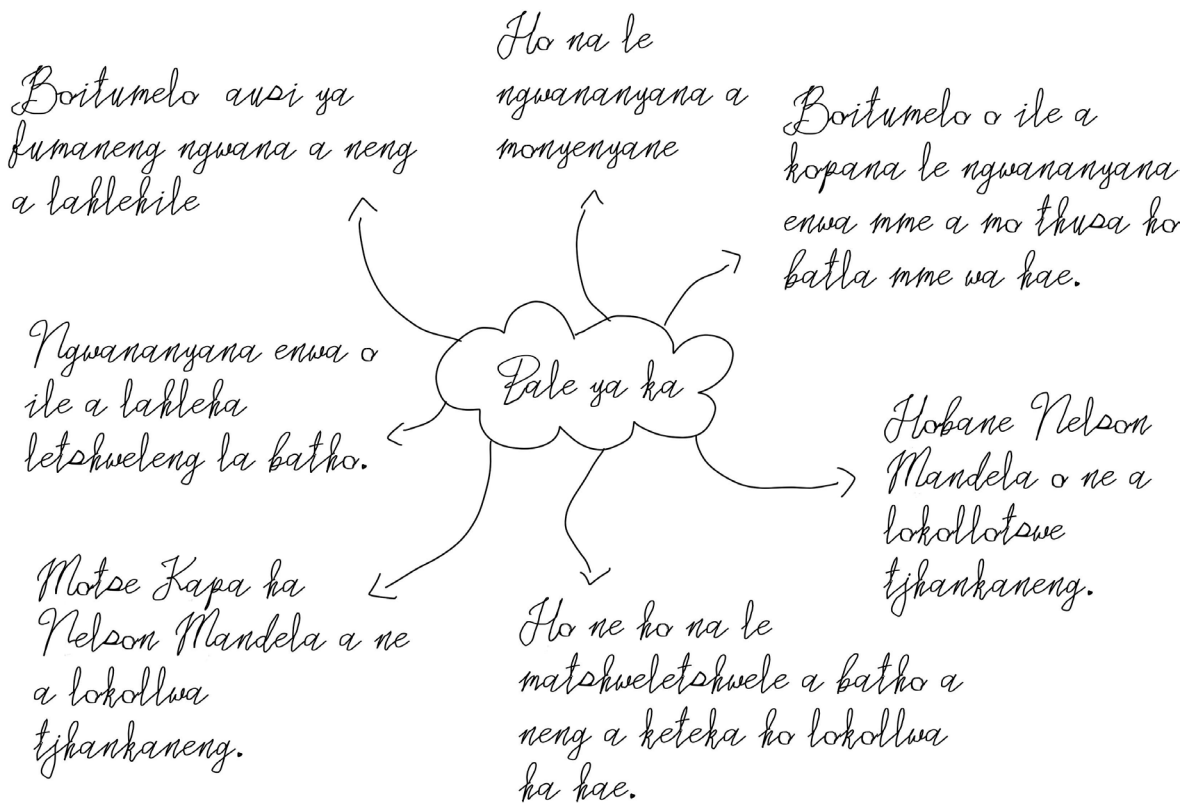 Boitumelo ausi ya
fumaneng ngwana a neng
a lahlehile
Ho na le
ngwananyana a
monyenyane
Boitumelo o ile a
kopana le ngwananyana
enwa mme a mo thusa ho
batla mme wa hae.
Ngwananyana enwa o
ile a lahleha
letshweleng la batho.
Pale ya ka
Hobane Nelson
Mandela o ne a
lokollotswe
tjhankaneng.
Motse Kapa ha
Nelson Mandela a ne
a lokollwa
tjhankaneng.
Ho ne ho na le
matshweletshwele a batho a
neng a keteka ho lokollwa
ha hae.